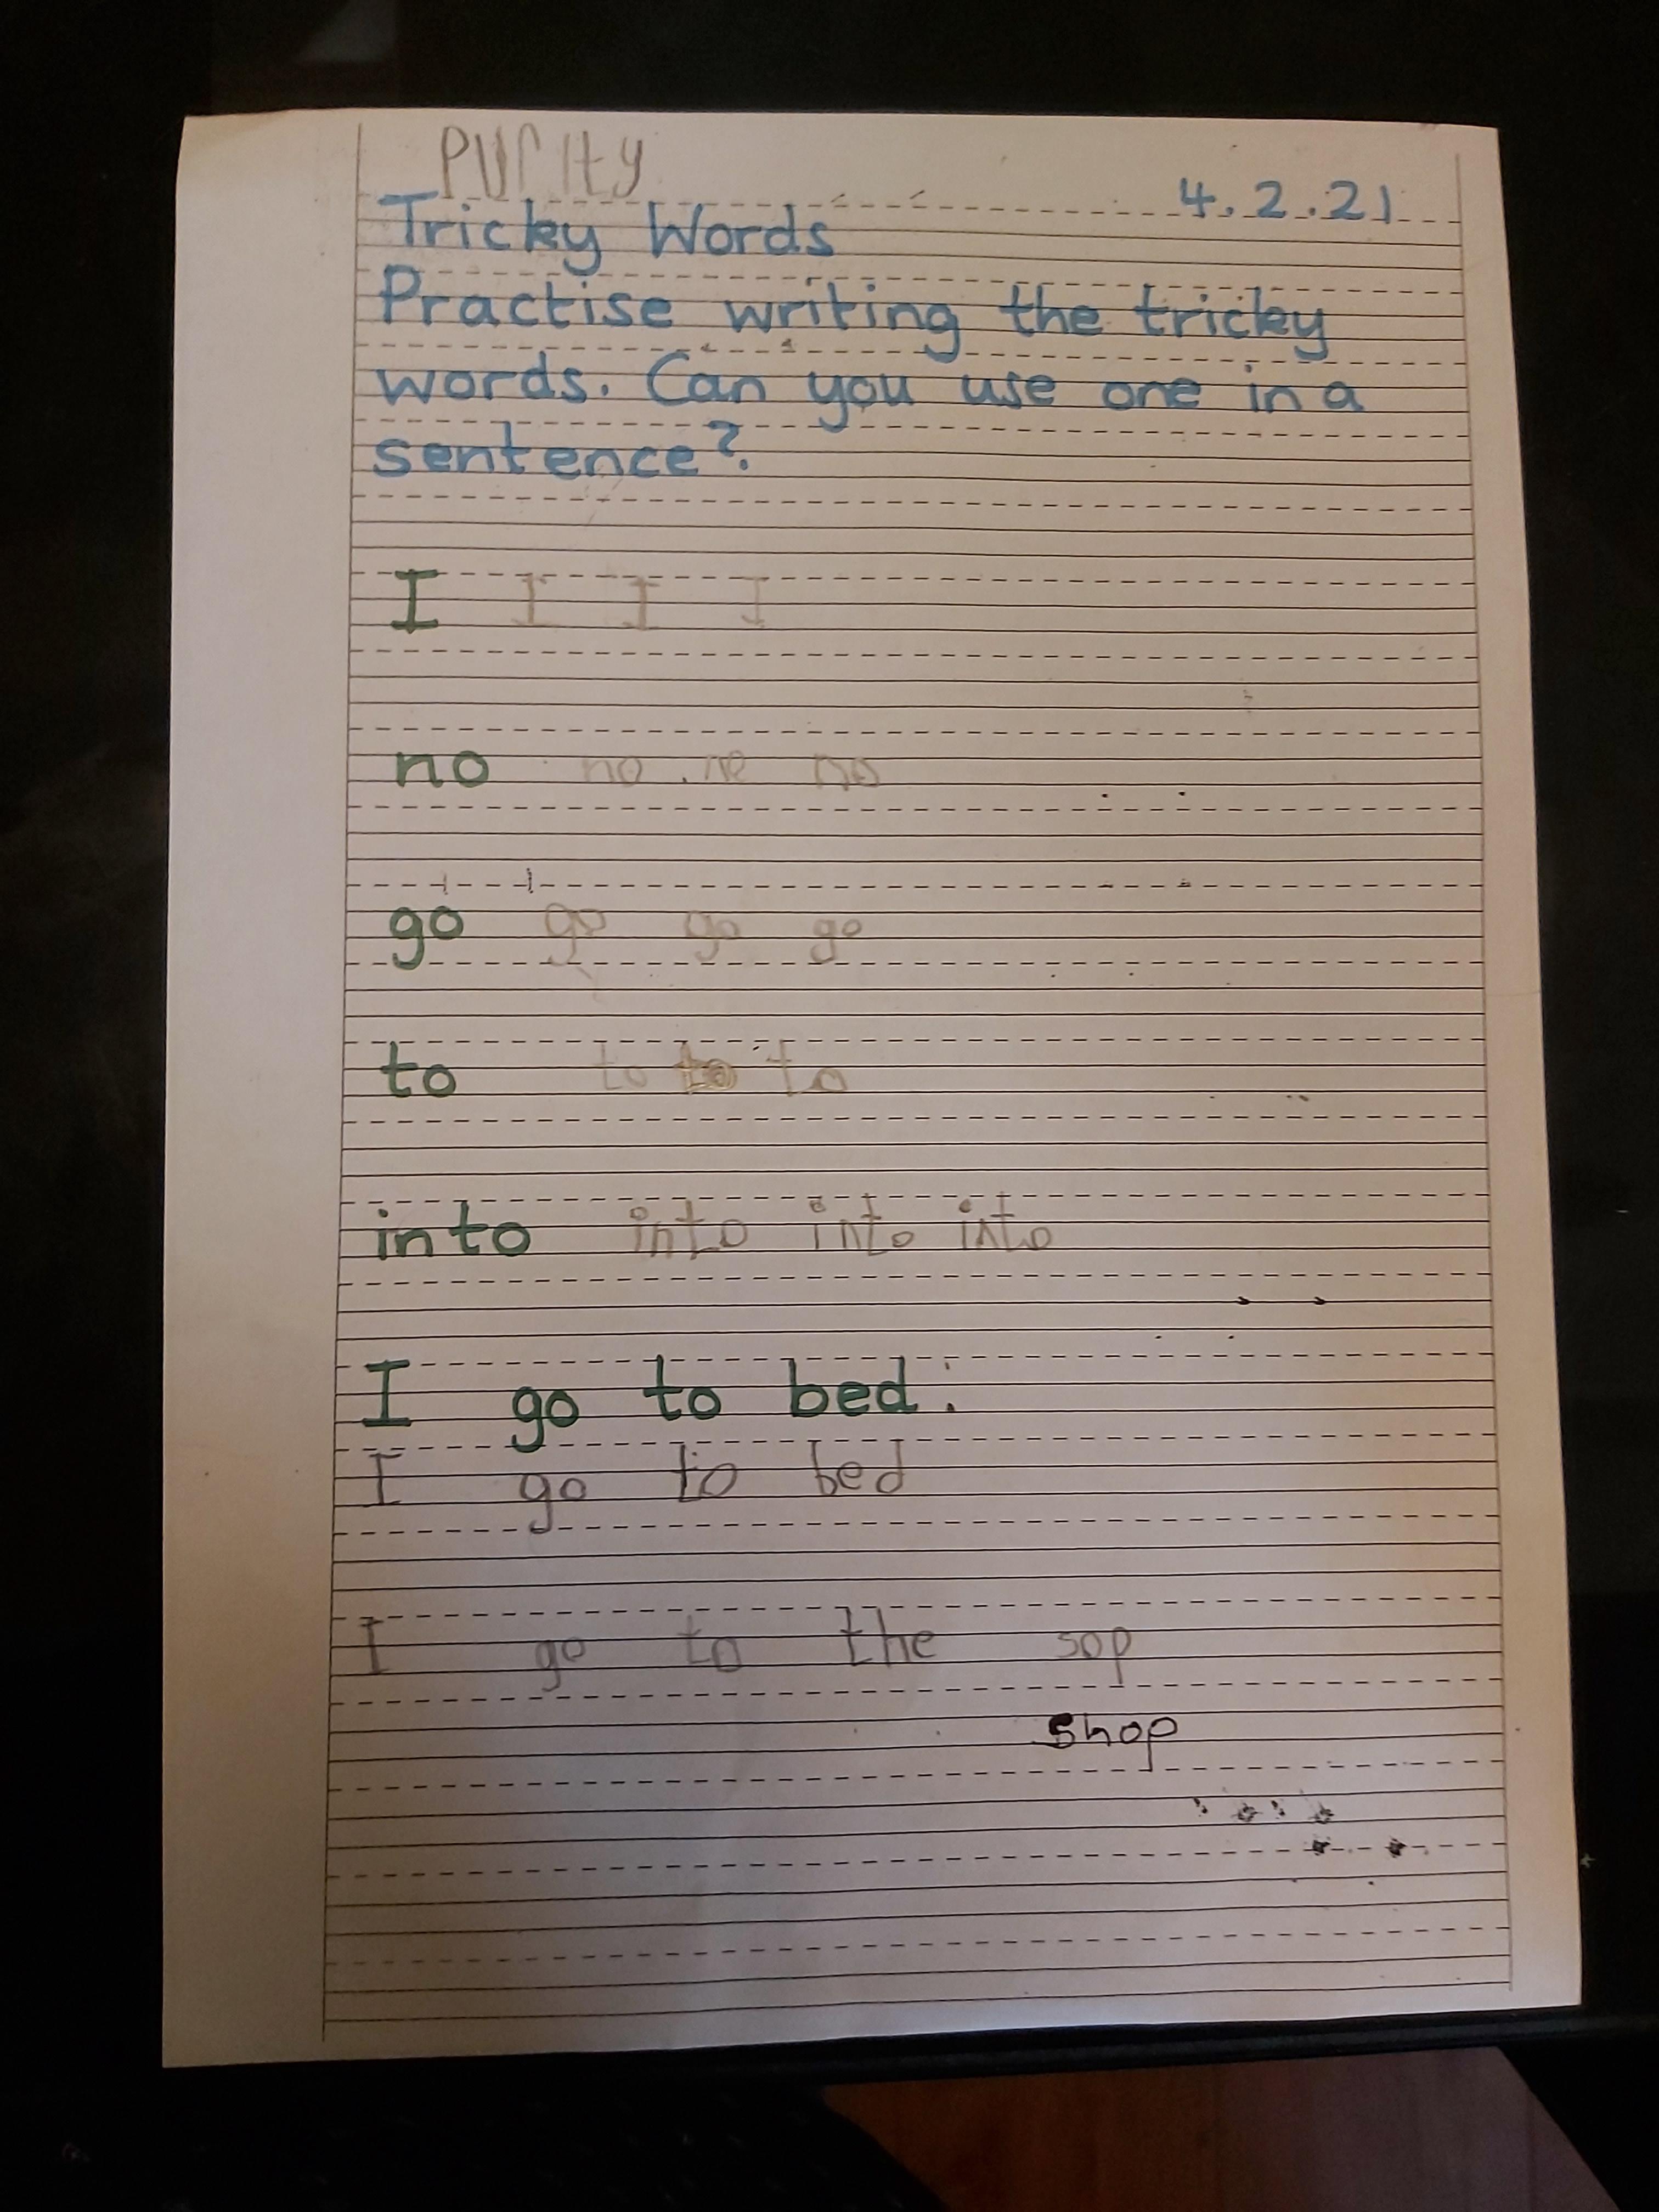 PUrity
4.2.21
Tricky Words
Practise writing the tricky
words. Can you use one in a
sentence?
I I I I
no no no no
go go go go
to to to to
into into into into
I go to bed.
I go to bed
I go to the sop
shop